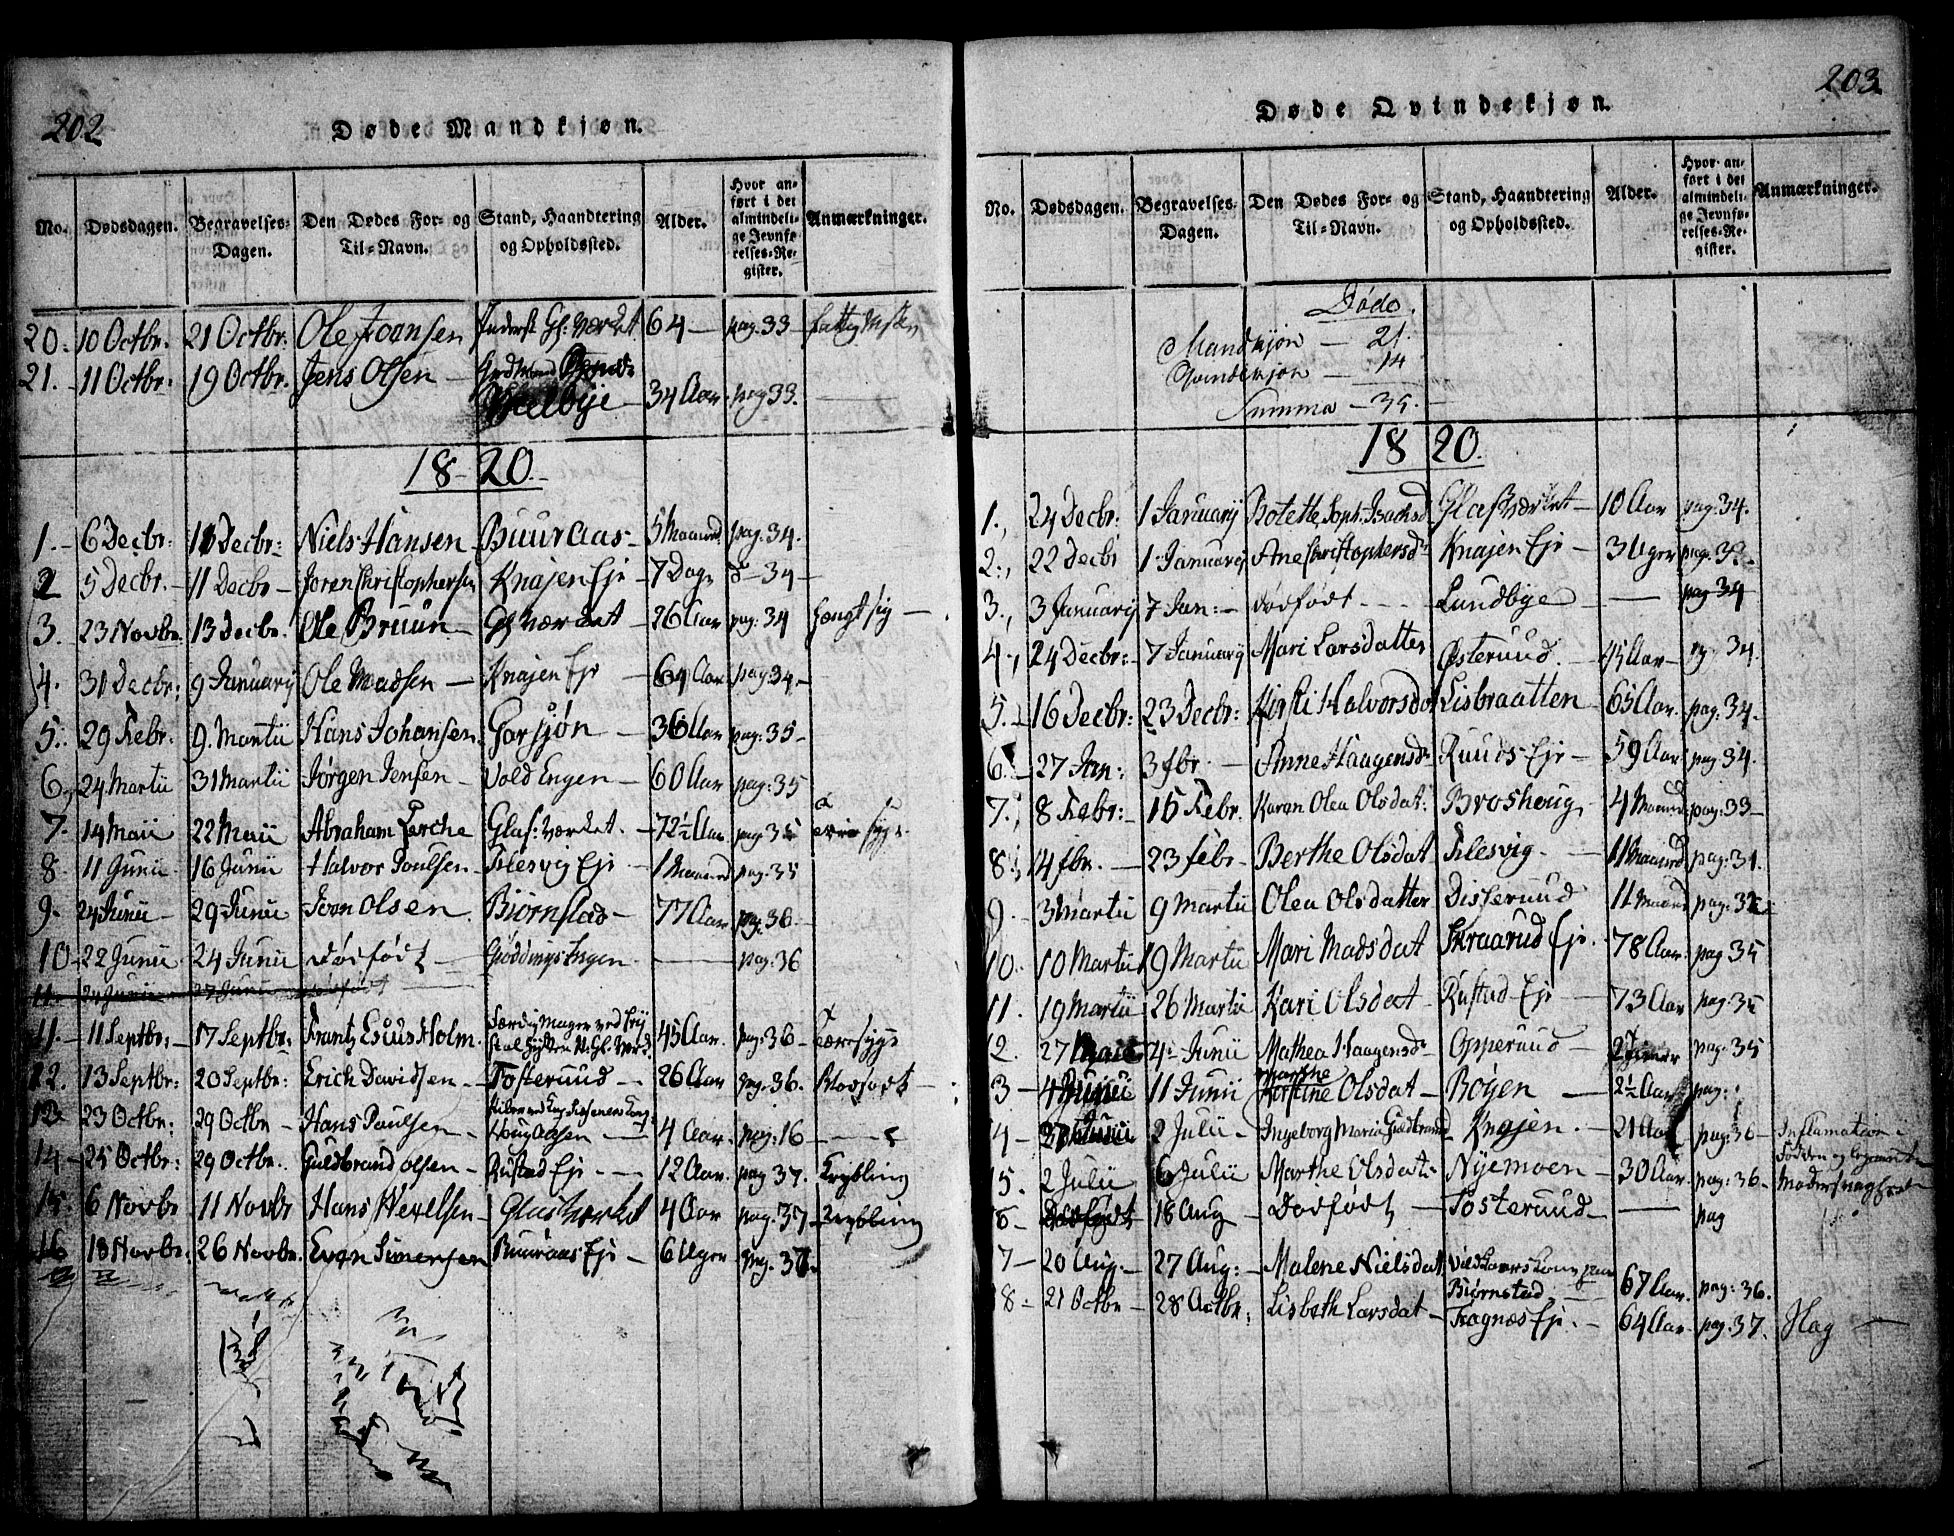 202
Døde Mandkjøn.
No. Dødsdagen. Begravelses-Dagen. Den Dødes For- og Til-Navn. Stand, Haandtering og Opholdssted. Alder. Hvor anført i det almindelige Jevnførelses-Register. Anmærkninger.
20. 10 Octbr. 21 Octbr. Ole Joensen Gl: Værket 64 — pag. 33
21. 11 Octbr. 19 Octbr. Jens Olsen — 34 Aar pag 33.
1820.
1. 6 Decbr: Decbr: Niels Hansen Buuraas 5 Maaned pag. 34.
2 5 Decbr. 11 Decbr — Joren Christophersen Knajen Eje 7 Dage 34
3. 23 Novbr. 13 Decbr. Ole Bruun Gl Værket 26 Aar pag. 34
4. 31 Decbr. 9 January Ole Madsen — Knajen Eje 64 Aar pag. 34.
5. 29 Febr. 9. Martii Hans Johansen. Gorsjøn 36 Aar pag. 35
6. 24 Martii 31 Martii Jørgen Jensen Vold Engen 60 Aar pag: 35
7. 14 Maii 22 Maii Abraham Lerche Glas: Værket. 72½ Aar pag. 35
8. 11 Junii 16 Junii Halvor Poulsen Filesvig Eje 1 Maaned pag. 35
9. 24 Junii 29 Junii Joen Olsen. Biørnstad 77 Aar pag. 36.
10 22 Junii 24 Junii Dødfødt Engen — pag. 36
11. 24 Junii 27 Junii Dødfødt
11. 11 Septbr. 17 Septbr: Frantz Holm. 45 Aar. pag. 36
12. 13 Septbr: 20 Septbr: Erich Davidsen Tosteruud 26 Aar pag. 36.
13 23 Octbr: 29 Octbr — Hans Poulsen 4 Aar. pag. 16
14 25 Octbr: 29 Octbr. Guldbrand Olsen Rustad Eje 12 Aar. pag. 37.
15. 6 Novbr 11 Novbr Hans Glas Værket 4 Aar pag. 37
16 18 Novbr. 26 Novbr. Even Simensen Buuraas Eje 6 Uger pag. 37.
203
Døde Qvindekjøn.
No. Dødsdagen. Begravelses-Dagen. Den Dødes For- og Til-Navn. Stand, Haandtering og Opholdssted. Alder. Hvor anført i det almindelige Jevnførelses-Register. Anmærkninger.
Døde.
Mandkjøn — 21.
Qvindekjøn — 14
Summa — 35.
1820.
1. 24 Decbr: 1 January Botette Soph. Glas Værket 10 Aar pag. 34.
2. 22 Decbr 1 January Ane Christophersd. Knajen Eje 3 Uger pag.
3. 3 January 7 Jan: Dødfødt Lundbye — pag 34
4. 24 Decbr: 7 January Mari Larsdatter Østeruud. 45 Aar 34.
5. 16 Decbr: 23 Decbr: Kirsti Halvorsdat Lisbraatten 65 Aar. pag: 34.
6. 27 Jan: 3 fbr. Anne Haagensd. Ruuds Eje 59 Aar pag 34.
7. 8 Febr: 15 Febr. Karen Olea Olsdat. Broshoug 4 Maaned pag. 33
8. 14 fbr. 23 febr Berthe Olsdat Filesvig. 11 Maaned pag. 31.
9. 3 Martii 9 Martii Olea Olsdatter Disteruud 11 Maaned pag. 32
10. 10 Martii 19 Martii Mari Madsdat Skraarud Eje. 78 Aar. pag 35
11. 19 Martii 26 Martii Kari Olsdat Rustad Eje 73 Aar pag: 35
2. 27 Maii 4 Junii Mathea Haagensd. Opperuud pag. 35
3 4 Junii 11 Junii Marthe Kirstine Olsdat Bøyen 2½ Aar pag.
4 Junii 2 Julii Ingeborg Maria Guldbrand Knajen. 21 Aar pag. 36 Inflamation i
5. 2 Julii 6 Julii Marthe Olsdat. Nyemoen 30 Aar. pag: 36
6 18 Aug Dødfødt Tosteruud — pag
7 20 Aug. 27 Aug: Malene Nielsdat Biørnstad 67 Aar. pag: 36.
8 21 Octbr 28 Octbr: Lisbeth Larsdat Tragnæs Eje. 64 Aar. pag. 37. Slag